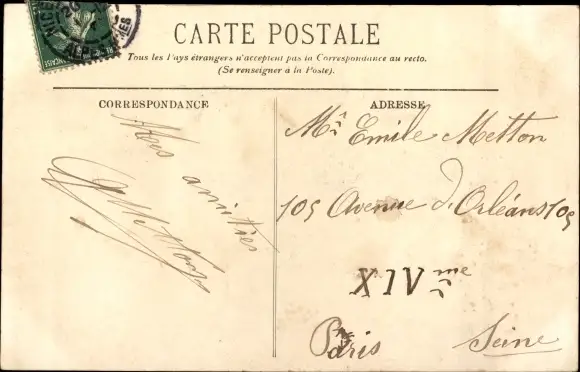 NICE
ALPES MMES
CARTE POSTALE
Tous les Pays étrangers n'acceptent pas la Correspondance au recto.
(Se renseigner à la Poste).
CORRESPONDANCE
Mes amitiés
ADRESSE
Mr Emile Metton
105 Avenue d'Orléans 105
XIVme
Paris Seine